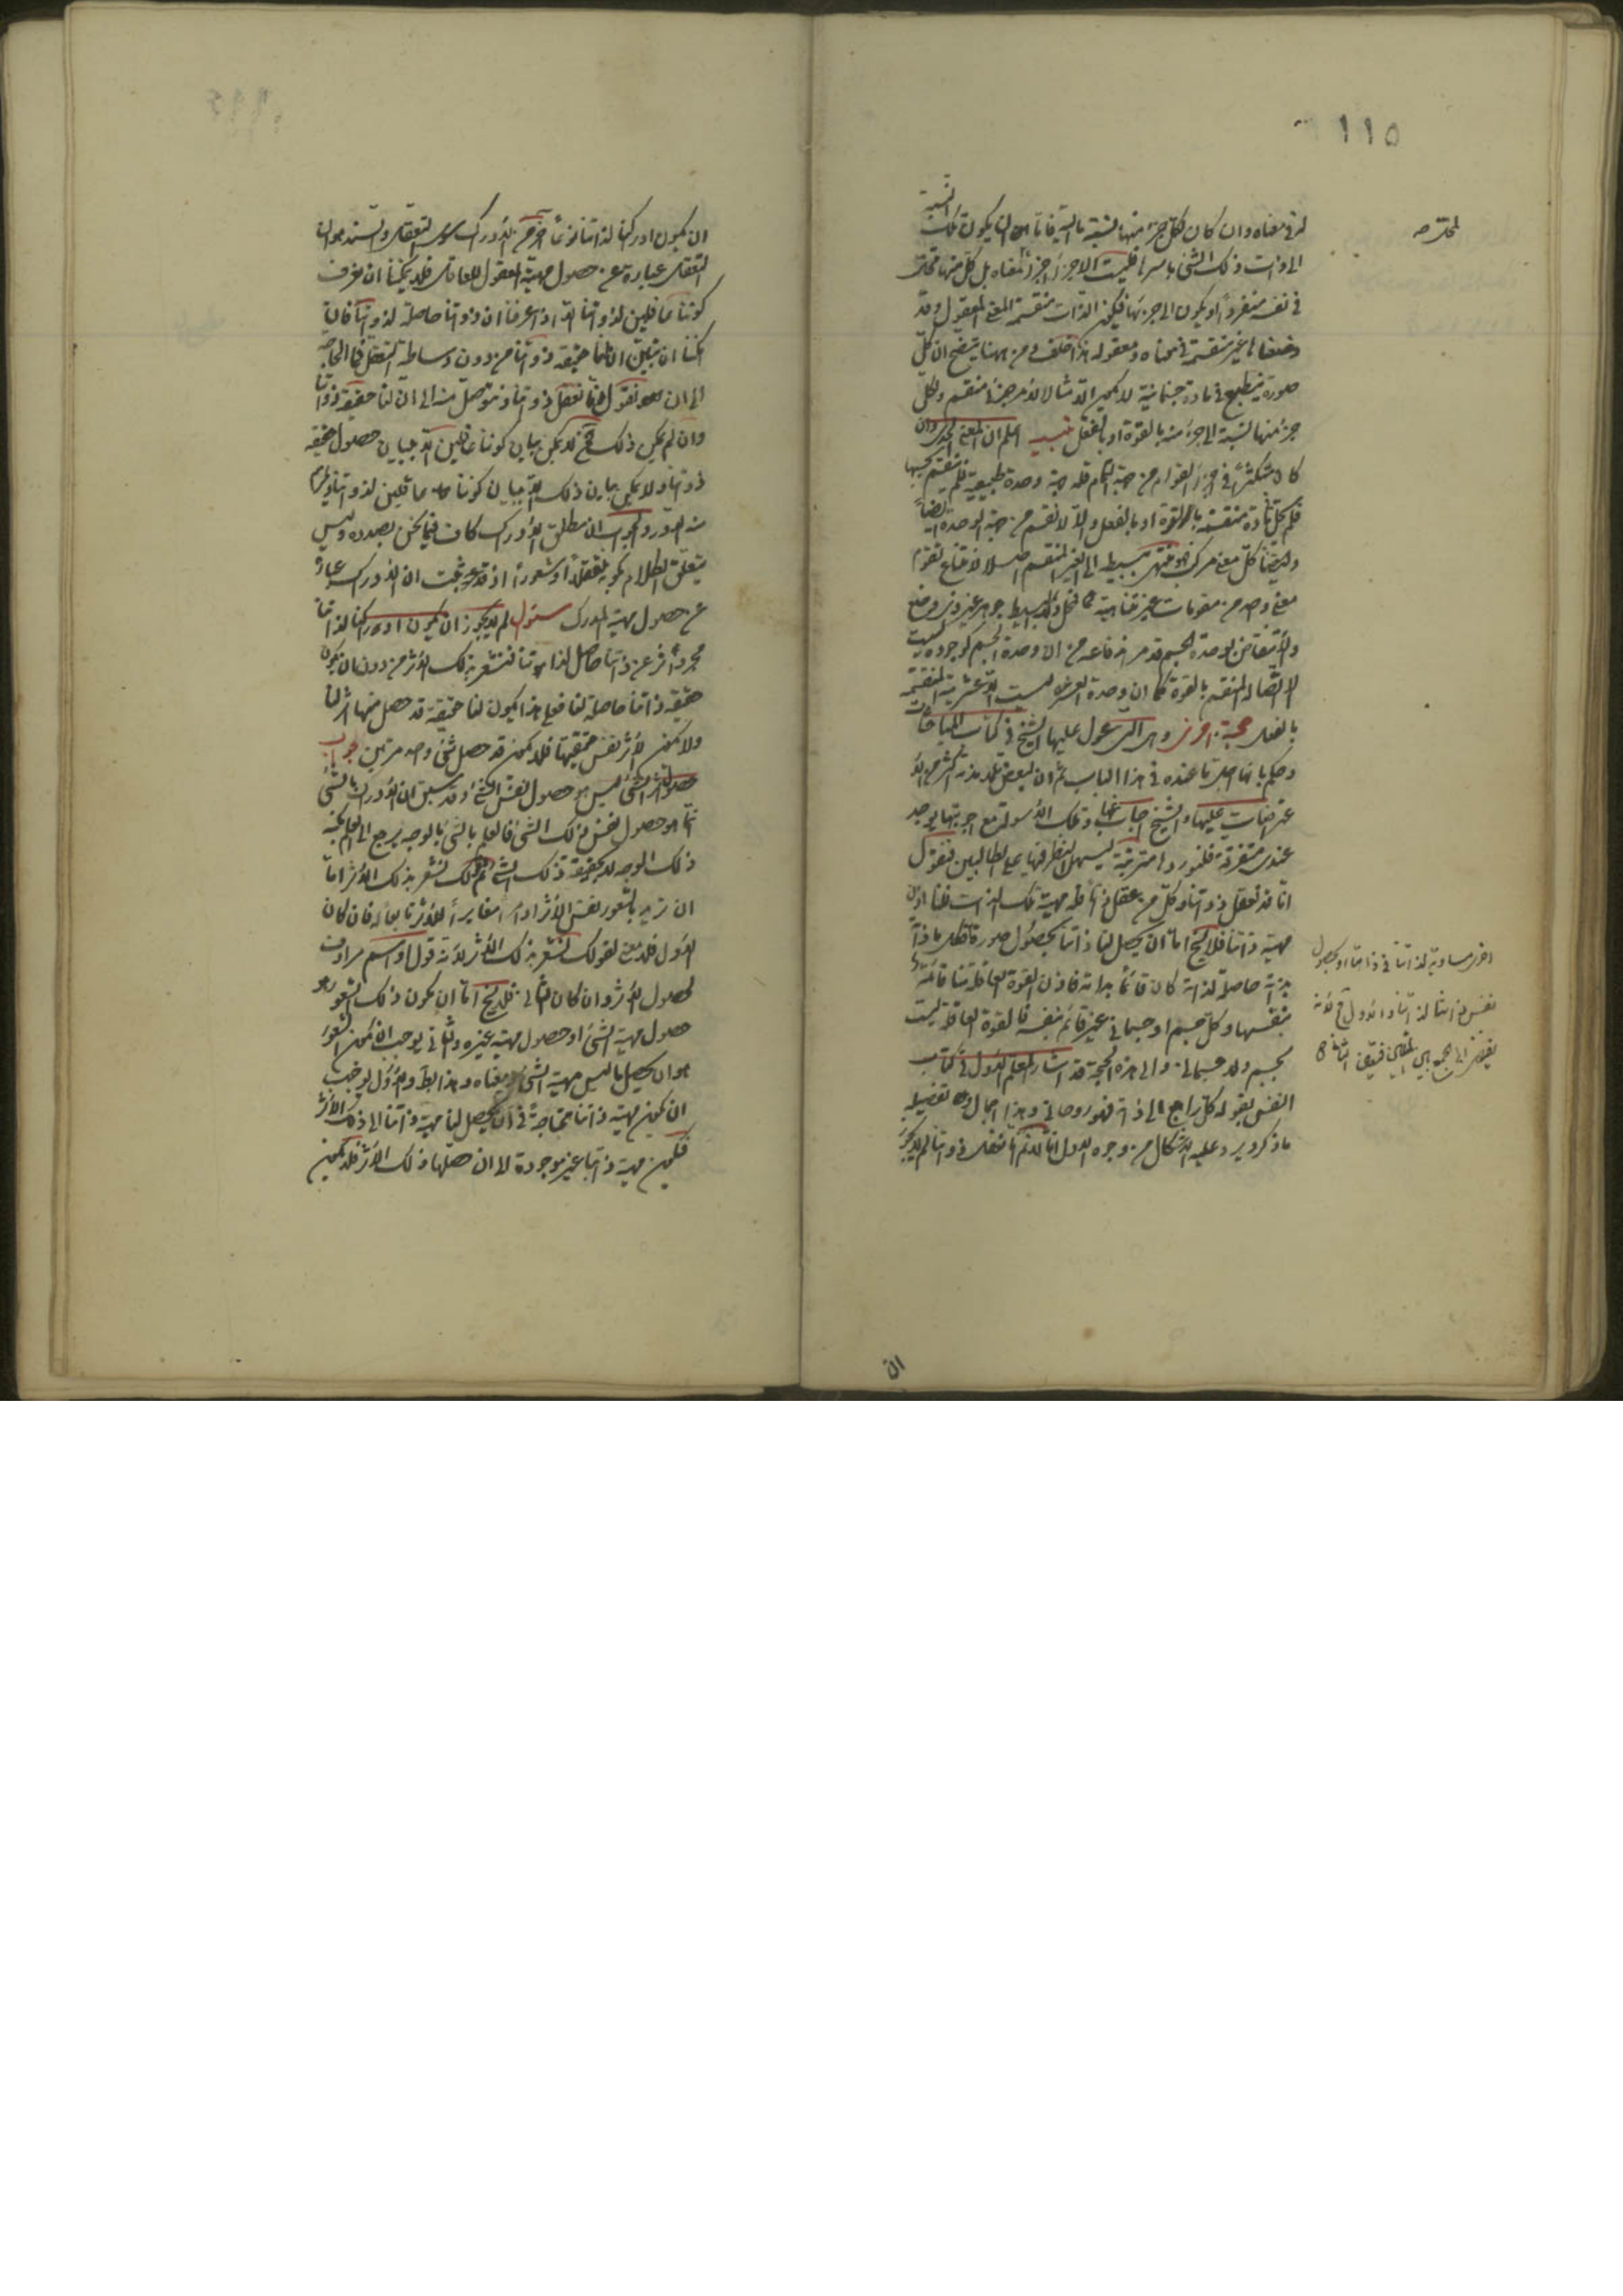 ١١٥
لا فى معناه وان كان لكل جزء منها نسبة ما اليه فاما ان يكون تلك النسبة
الى ذات ذلك الشئ باسرها فليست الاجزاء اجزاء لمعناه بل كل منها
فى نفسه منفرداً او يكون الى جزئها فيكون الذات منقسمة المعنى المعقول وقد
وضعناها غير منقسمة فى معناه ومعقوله هذا خلف ومن ههنا يتضح ان كل
صورة ينطبع فى مادة جسمانية لا يكون الا مثالا لامر جزئى منقسم ولكل
جزء منها نسبة الى جزء منه بالقوة او بالفعل تنبيه اعلم ان المعنى الحدى وان
كان متكثراً فى اجزاء القوام من جهة التمام فله جهة وحدة طبيعية فلم ينقسم بحسبها
فلم يحل مادة منقسمة بالقوة او بالفعل والا لانقسم من جهة الوحدة ايضاً
وايضا كل معنى مركب فهو منتهى ببسيطه الى الغير المنقسم اصلا لامتناع تقوم
معنى واحد من مقومات غير متناهية فمحل ذلك البسيط جوهر غير ذى وضع
والانتقاض بوحدة الجسم قد مر اندفاعه من ان وحدة الجسم كوجوده ليست
الا اتصاله المنقسم بالقوة كما ان وحدة العشرة ليست الا عشرية المنقسمة
بالفعل حجة اخرى وهى التى عول عليها الشيخ فى كتاب المباحثات
وحكم بانها اجل ما عنده فى هذا الباب ثم ان بعض تلامذته اكثر من الا
عتراضات عليها والشيخ اجاب عنها وتلك الاسولة مع اجوبتها يوجد
عندى متفرقة فلنوردها مترتبة ليسهل النظر فيها على الطالبين فنقول
انا قد نعقل ذواتنا وكل من عقل ذاتاً فله مهية تلك الذات فلنا اذن
مهية ذاتنا فلا يخ اما ان يحصل لنا ذاتنا بحصول صورة
ذاته حاصلة لذاته كان قائما بذاته فاذن القوة العاقلة منا قائمة
بنفسها وكل جسم او جسمانى غير قائم بنفسه فالقوة العاقلة ليست
بجسم ولا جسمانى والى هذه الحجة قد اشار المعلم الاول فى كتاب
النفس بقوله كل راجع الى ذاته فهو روحانى وهذا اجمال تفصيله
ما ذكر ويرد عليه الاشكال من وجوه الاول انا لا نم انا نعقل ذواتنا لم لا يجوز
اخرى مساوية لذاتنا فى ذاتنا او بحصول
نفس ذاتنا لذاتنا والاول مح لانه
يفضى الى الجمع بين المثلين فيتعين الثانى
ان
ان يكون ادراكنا لذاتنا نوعاً آخر من الادراك سوى التعقل والسند هو ان
التعقل عبارة عن حصول مهية المعقول للعاقل فلا يمكننا ان نعرف
كوننا عاقلين لذواتنا الا اذا عرفنا ان ذواتنا حاصلة لذواتنا فان
امكننا ان نبين ان لنا حقيقة ذواتنا من دون وساطة التعقل فما الحاجة
الى ان نقول انا نعقل ذواتنا ونتوصل منه الى ان لنا حقيقة ذواتنا
وان لم يمكن ذلك فح لا يمكن بيان كوننا عاقلين الا ببيان حصول حقيقة
ذواتنا ولا يمكن بيان ذلك الا ببيان كوننا عاقلين لذواتنا ويلزم
منه الدور والجواب ان مطلق الادراك كاف فيما نحن بصدده وليس
يتعلق الكلام بكونه تعقلاً او شعوراً اذ قد ثبت ان الادراك عبارة
عن حصول مهية المدرك سؤال لم لا يجوز ان يكون ادراكنا لذاتنا
بمجرد اثر عن ذاتنا حاصل لذاتنا فنشعر بذلك الاثر من دون ان يكون
حقيقة ذاتنا حاصلة لنا فعلى هذا يكون لنا حقيقة قد حصل منها اثر لنا
ولا يكون الاثر نفس حقيقتها فلا يكون قد حصل شئ واحد مرتين جواب
حصول اثر الشئ ليس هو حصول نفس الشئ وقد سبق ان الادراك بالشئ
انما هو حصول نفس ذلك الشئ فالعلم بالشئ بالوجه يرجع الى العلم بكنه
ذلك الوجه لا بحقيقة ذلك الشئ ثم قولك نشعر بذلك الاثر اما
ان تريد بالشعور نفس الاثر او امراً مغايراً للاثر تابعاً له فان كان
الاول فلا معنى لقولك نشعر بذلك الاثر لانه قول او اسم مرادف
لحصول الاثر وان كان الثانى فلا يخ اما ان يكون ذلك الشعور هو
حصول مهية الشئ او حصول مهية غيره والثانى يوجب ان يكون الشعور
هو ان يحصل ما ليس مهية الشئ ومعناه وهذا بط والاول يوجب
ان يكون مهية ذاتنا محتاجة فى ان يحصل لنا مهية ذاتنا الى ذلك الاثر
فيكون مهية ذاتنا غير موجودة الا ان حصلها ذلك الاثر فلا يكون